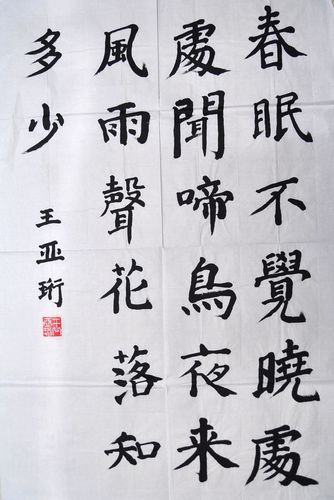 春眠不覺曉處
處聞啼鳥夜来
風雨聲花落知
多少
王亚珩